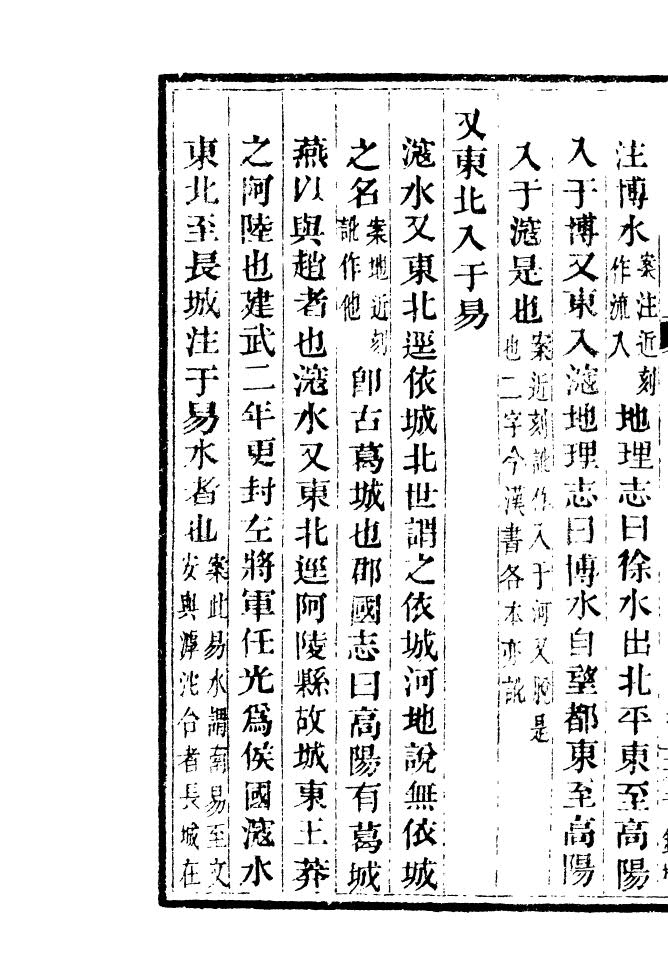 注博水案注近刻作流入地理志曰徐水出北平東至高陽
入于博又東入滱地理志曰博水自望都東至高陽
入于滱是也案近刻訛作入于河又脫是也二字今漢書各本亦訛
又東北入于易
滱水又東北逕依城北世謂之依城河地說無依城
之名案地近刻訛作他即古葛城也郡國志曰高陽有葛城
燕以與趙者也滱水又東北逕阿陵縣故城東王莽
之阿陸也建武二年更封左將軍任光爲侯國滱水
東北至長城注于易水者也案此易水謂南易至文安與滹沱合者長城在